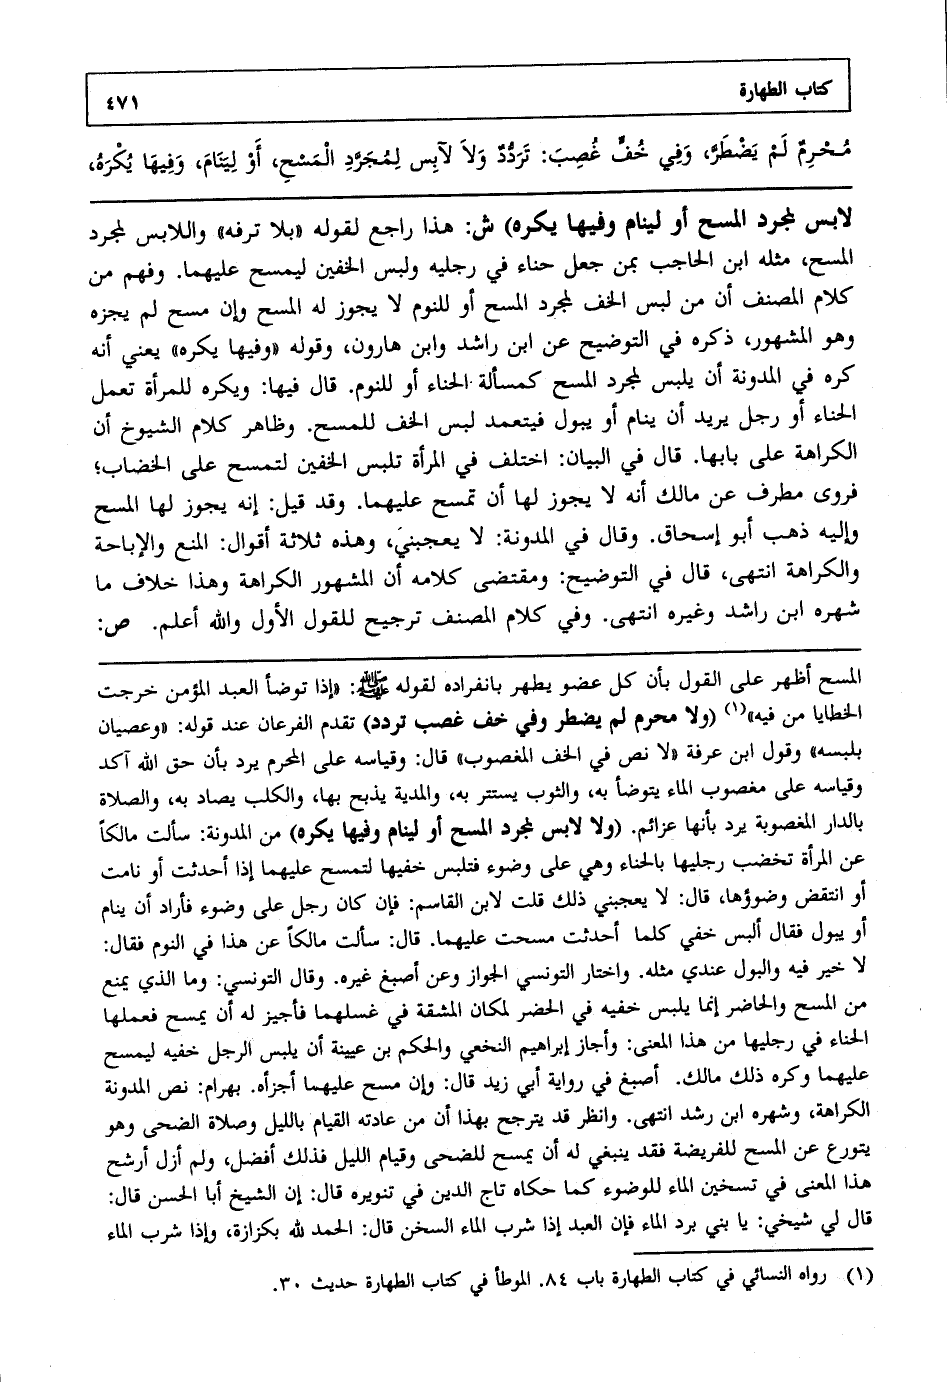 كتاب الطهارة ٤٧١
مُحْرِمٌ لَمْ يَضْطَرَّ، وَفِي خُفٍّ غُصِبَ: تَرَدُّدٌ وَلاَ لاَبِسٍ لِمُجَرَّدِ الْمَسْحِ، أَوْ لِيَنَامَ، وَفِيهَا يُكْرَهُ،
لابس لمجرد المسح أو لينام وفيها يكره) ش: هذا راجع لقوله «بلا ترفه» واللابس لمجرد
المسح، مثله ابن الحاجب بمن جعل حناء في رجليه ولبس الخفين ليمسح عليهما. وفهم من
كلام المصنف أن من لبس الخف لمجرد المسح أو للنوم لا يجوز له المسح وإن مسح لم يجزه
وهو المشهور، ذكره في التوضيح عن ابن راشد وابن هارون، وقوله «وفيها يكره» يعني أنه
كره في المدونة أن يلبس لمجرد المسح كمسألة الحناء أو للنوم. قال فيها: ويكره للمرأة تعمل
الحناء أو رجل يريد أن ينام أو يبول فيتعمد لبس الخف للمسح. وظاهر كلام الشيوخ أن
الكراهة على بابها. قال في البيان: اختلف في المرأة تلبس الخفين لتمسح على الخضاب؛
فروى مطرف عن مالك أنه لا يجوز لها أن تمسح عليهما. وقد قيل: إنه يجوز لها المسح
وإليه ذهب أبو إسحاق. وقال في المدونة: لا يعجبني، وهذه ثلاثة أقوال: المنع والإباحة
والكراهة انتهى، قال في التوضيح: ومقتضى كلامه أن المشهور الكراهة وهذا خلاف ما
شهره ابن راشد وغيره انتهى. وفي كلام المصنف ترجيح للقول الأول والله أعلم. ص:
المسح أظهر على القول بأن كل عضو يطهر بانفراده لقوله ﷺ: «إذا توضأ العبد المؤمن خرجت
الخطايا من فيه»(١) (ولا محرم لم يضطر وفي خف غصب تردد) تقدم الفرعان عند قوله: «وعصيان
بلبسه» وقول ابن عرفة «لا نص في الخف المغصوب» قال: وقياسه على المحرم يرد بأن حق الله آكد
وقياسه على مغصوب الماء يتوضأ به، والثوب يستتر به، والمدية يذبح بها، والكلب يصاد به، والصلاة
بالدار المغصوبة يرد بأنها عزائم. (ولا لابس لمجرد المسح أو لينام وفيها يكره) من المدونة: سألت مالكاً
عن المرأة تخضب رجليها بالحناء وهي على وضوء فتلبس خفيها لتمسح عليهما إذا أحدثت أو نامت
أو انتقض وضوؤها، قال: لا يعجبني ذلك قلت لابن القاسم: فإن كان رجل على وضوء فأراد أن ينام
أو يبول فقال ألبس خفي كلما أحدثت مسحت عليهما. قال: سألت مالكاً عن هذا في النوم فقال:
لا خير فيه والبول عندي مثله. واختار التونسي الجواز وعن أصبغ غيره. وقال التونسي: وما الذي يمنع
من المسح والحاضر إنما يلبس خفيه في الحضر لمكان المشقة في غسلهما فأجيز له أن يمسح فعملها
الحناء في رجليها من هذا المعنى: وأجاز إبراهيم النخعي والحكم بن عيينة أن يلبس الرجل خفيه ليمسح
عليهما وكره ذلك مالك. أصبغ في رواية أبي زيد قال: وإن مسح عليهما أجزأه. بهرام: نص المدونة
الكراهة، وشهره ابن رشد انتهى. وانظر قد يترجح بهذا أن من عادته القيام بالليل وصلاة الضحى وهو
يتورع عن المسح للفريضة فقد ينبغي له أن يمسح للضحى وقيام الليل فذلك أفضل، ولم أزل أرشح
هذا المعنى في تسخين الماء للوضوء كما حكاه تاج الدين في تنويره قال: إن الشيخ أبا الحسن قال:
قال لي شيخي: يا بني برد الماء فإن العبد إذا شرب الماء السخن قال: الحمد لله بكزازة، وإذا شرب الماء
(١) رواه النسائي في كتاب الطهارة باب ٨٤. الموطأ في كتاب الطهارة حديث ٣٠.